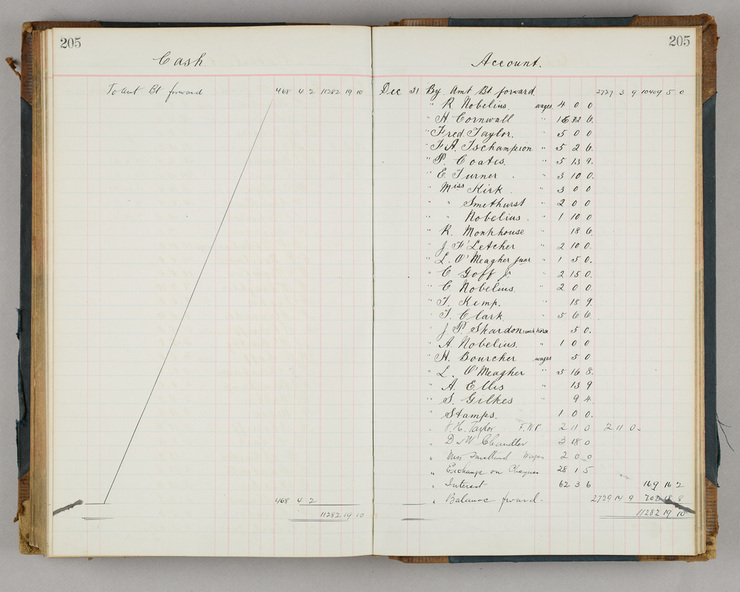 205
Cash
To amt Bt forward 468 4 2 11282 19 10
468 4 2
11282 19 10
205
Account.
Dec 31 By Amt Bt forward 2727 3 9 10409 5 0
" R Nobelius wages 4 0 0
" H Cornwall "
" Fred Taylor. " 5 0 0
" F. A. Tschampion " 5 2 6
" P. Coates. " 5 13 9.
" E Turner " 3 10 0.
" Miss Kirk " 3 0 0
" " Smethurst " 2 0 0
" " Nobelius " 1 10 0
" R. Monkhouse " 18 6
" J F Letcher " 2 10 0.
" L. O'Meagher Junr " 1 5 0.
" C Goff Jr " 2 15 0.
" C Nobelius " 2 0 0
" T. Kemp. " 15 9.
" T. Clark " 5 6 6
" J P Skardon 5 0.
" A Nobelius. " 1 0 0
" H. Bourcher wages 5 0
" L. O'Meagher " 5 16 8.
" A. Ellis " 13 9
" S. Gilkes " 9 4.
" Stamps. 1 0 0.
" Taylor 2 11 0 2 11 0.
" D & W Chandler 3 18 0
" Miss Wages 2 0 0
" Exchange on Cheques 28 1 5
" Interest 62 3 6 169 16 2
" Balance forwd. 2729 14 9 703 18 8
11282 19 10